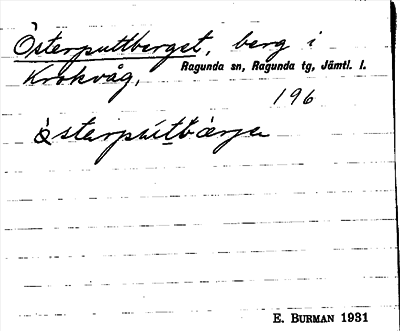 Österputtberget, berg i
Krokvåg, Ragunda sn, Ragunda tg, Jämtl. l.
196
òsterpùtbærje
E. BURMAN 1931